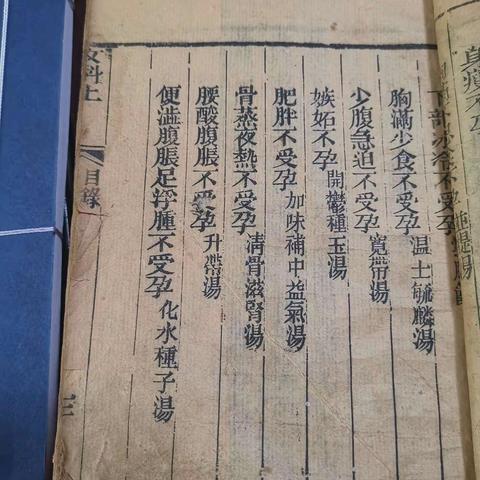 身瘦不孕
下部冰冷不受
胸滿少食不受孕 温土毓麟湯
少腹急迫不受孕 寬帶湯
嫉妬不孕 開鬱種玉湯
肥胖不受孕 加味補中益氣湯
骨蒸夜熱不受孕 清骨滋腎湯
腰酸腹脹不受孕 升帶湯
便澁腹脹足浮腫不受孕 化水種子湯
女科上 目錄